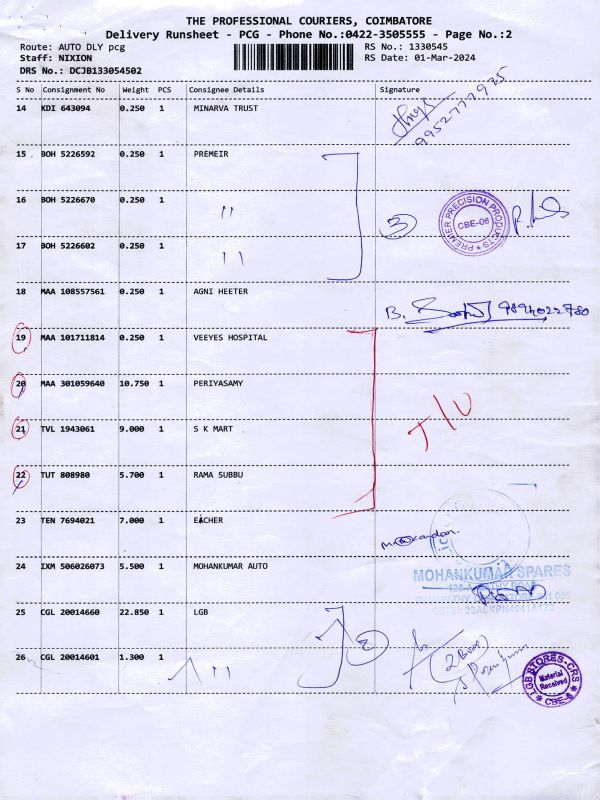 THE PROFESSIONAL COURIERS, COIMBATORE
Delivery Runsheet - PCG - Phone No.:0422-3505555 - Page No.:2
Route: AUTO DLY pcg RS No.: 1330545
Staff: NIXION RS Date: 01-Mar-2024
DRS No.: DCJB133054502
S No Consignment No Weight PCS Consignee Details Signature
14 KDI 643094 0.250 1 MINARVA TRUST
15 BOH 5226592 0.250 1 PREMEIR
16 BOH 5226670 0.250 1 "
3
PREMIER PRECISION PRODUCTS
CBE-06
17 BOH 5226602 0.250 1 "
18 MAA 108557561 0.250 1 AGNI HEETER
B.
19 MAA 101711814 0.250 1 VEEYES HOSPITAL
20 MAA 301059640 10.750 1 PERIYASAMY
21 TVL 1943061 9.000 1 S K MART
22 TUT 808980 5.700 1 RAMA SUBBU
23 TEN 7694021 7.000 1 EACHER
24 IXM 506026073 5.500 1 MOHANKUMAR AUTO
MOHANKUMAR SPARES
25 CGL 20014660 22.850 1 LGB
2
26 CGL 20014601 1.300 1 "
LGB STORES-CRS
Material
Received
CBE-6